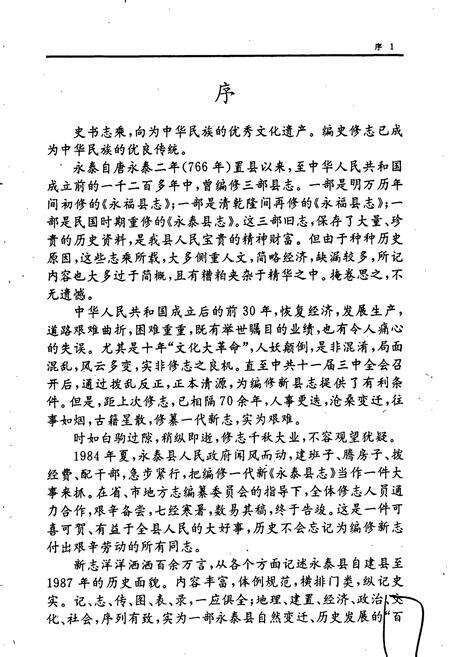 序 1
序
史书志乘,向为中华民族的优秀文化遗产。编史修志已成
为中华民族的优良传统。
永泰自唐永泰二年(766年)置县以来,至中华人民共和国
成立前的一千二百多年中,曾编修三部县志。一部是明万历年
间初修的《永福县志》;一部是清乾隆间再修的《永福县志》;一
部是民国时期重修的《永泰县志》。这三部旧志,保存了大量、珍
贵的历史资料,是我县人民宝贵的精神财富。但由于种种历史
原因,这些志乘所载,大多侧重人文,简略经济,缺漏较多,所记
内容也大多过于简概,且有糟粕夹杂于精华之中。掩卷思之,不
无遗憾。
中华人民共和国成立后的前30年,恢复经济,发展生产,
道路艰难曲折,困难重重,既有举世瞩目的业绩,也有令人痛心
的失误。尤其是十年“文化大革命”,人妖颠倒,是非混淆,局面
混乱,风云多变,实非修志之良机。直至中共十一届三中全会召
开后,通过拨乱反正,正本清源,为编修新县志提供了有利条
件。但是,距上次修志,已相隔70余年,人事更迭,沧桑变迁,往
事如烟,古籍星散,修纂一代新志,实为艰难。
时如白驹过隙,稍纵即逝,修志千秋大业,不容观望犹疑。
1984年夏,永泰县人民政府闻风而动,建班子、腾房子、拨
经费、配干部,急步紧行,把编修一代新《永泰县志》当作一件大
事来抓。在省、市地方志编纂委员会的指导下,全体修志人员通
力合作,艰辛备尝,七经寒暑,数易其稿,终于告竣。这是一件可
喜可贺、有益于全县人民的大好事,历史不会忘记为编修新志
付出艰辛劳动的所有同志。
新志洋洋洒洒百余万言,从各个方面记述永泰县自建县至
1987年的历史面貌。内容丰富,体例规范,横排门类,纵记史
实。记、志、传、图、表、录,一应俱全;地理、建置、经济、政治、文
化、社会,序列有致,实为一部永泰县自然变迁、历史发展的“百